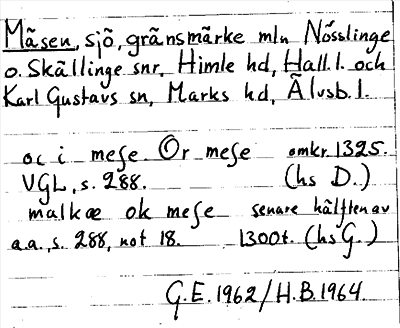 Mäsen, sjö, gränsmärke mln Nösslinge
o. Skällinge snr, Himle hd, Hall. l. och
Karl Gustavs sn, Marks hd, Älvsb. l.
oc i meſe. Or meſe omkr. 1325.
VGL, s. 288. (hs D.)
malkæ ok meſe senare hälften av
a.a., s. 288, not 18. 1300t. (hs G.)
G.E. 1962/H.B. 1964.